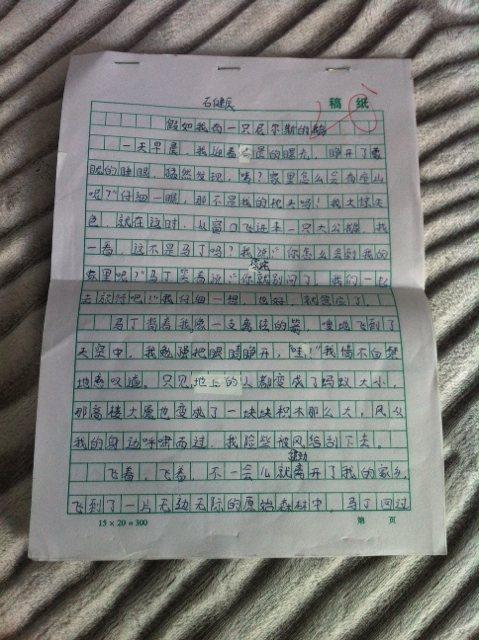 石健辰
稿 纸
假如我有一只尼尔斯的鹅
一天早晨，我迎着晨的曙光，睁开了朦
胧的睡眼，猛然发现，咦？家里怎么会有座山
呢？仔细一瞧，那不是我的枕头吗！我大惊失
色，就在这时，从窗口飞进来一只大公鹅，我
一看，这不是马丁吗？我说“你怎么会到我的
家里呢？”马丁笑着说：“你就别问了，我们一起
去旅行吧！”我仔细一想，也好，就答应了。
马丁背着我像一支离弦的箭，嗖地飞到了
天空中，我勉强把眼睛睁开，“哇！”我情不自禁
地感叹道。只见地上的人都变成了蚂蚁大小，
那高楼大厦也变成了一块块积木那么大，风从
我的身边呼啸而过，我险些被风给刮下去。
飞着，飞着，不一会儿就离开了我的家乡，
飞到了一片无边无际的原始森林中，马丁问过
15×20=300
第 页